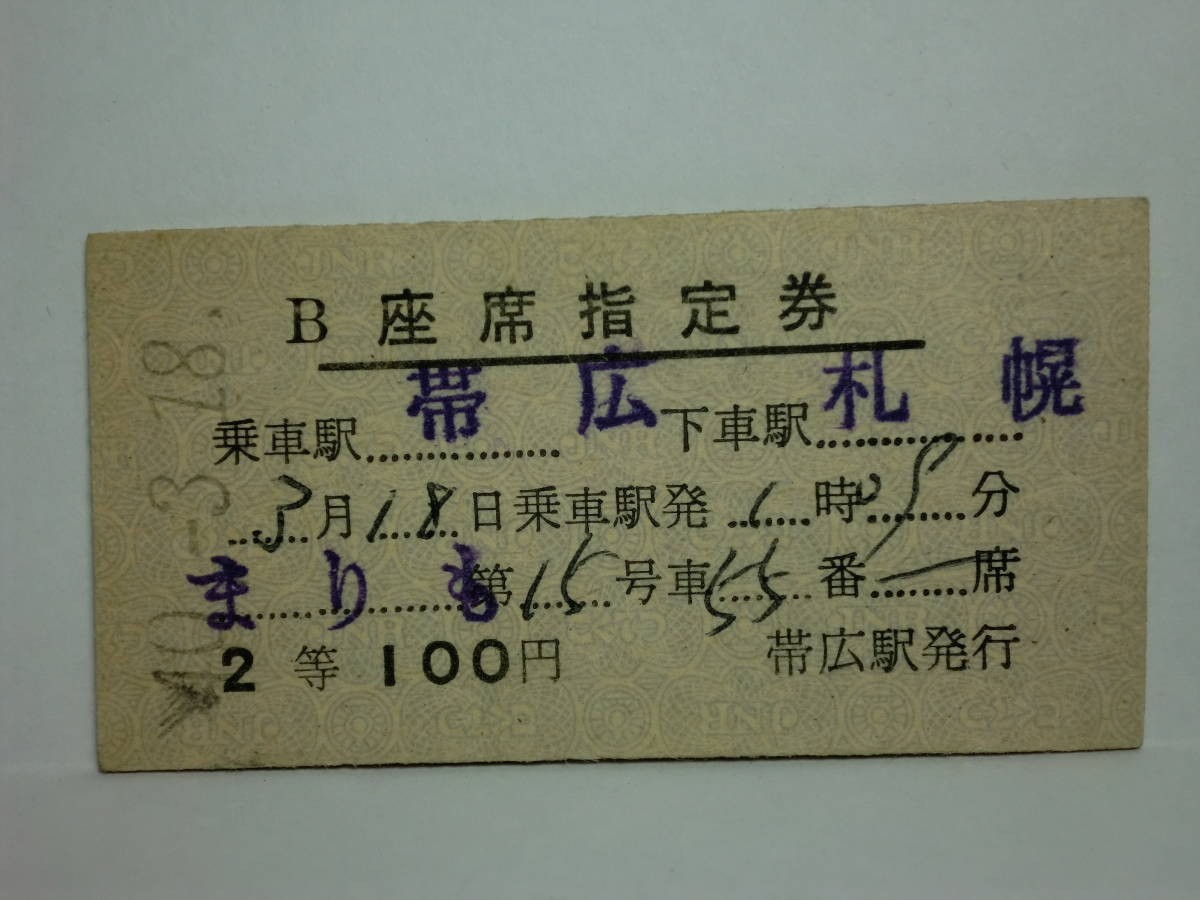 B座席指定券
乗車駅 帯広 下車駅 札幌
3月18日乗車駅発1時05分
まりも 第15号車55番席
2等 100円 帯広駅発行
40.-3.18.